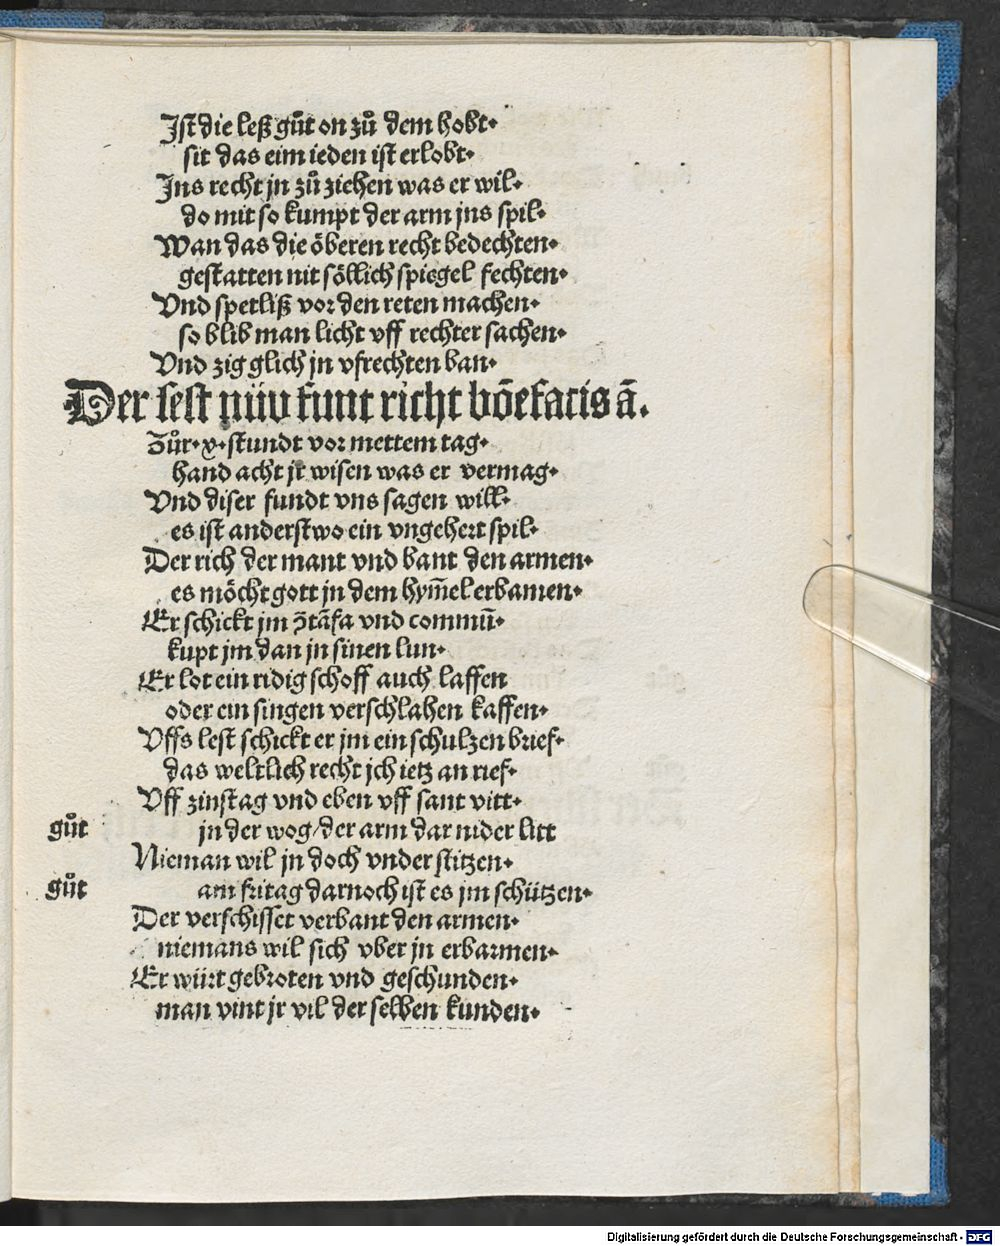 Ist die leß gůt on zů dem hobt·
sit das eim ieden ist erlobt·
Ins recht jn zů ziehen was er wil·
do mit so kumpt der arm jns spil·
Wan das die öberen recht bedechten·
gestatten nit söllich spiegel fechten·
Vnd spetliß vor den reten machen·
so blib man licht vff rechter sachen·
Vnd zig glich jn vfrechten ban·
Der lest nüv funt richt bōefacis ā.
Zůr·x·stundt vor mettem tag·
hand acht jr wisen was er vermag·
Vnd diser fundt vns sagen will·
es ist anderstwo ein vngehert spil·
Der rich der mant vnd bant den armen·
es möcht gott jn dem hym̄el erbamen·
Er schickt jm ꝯtāfa vnd commū·
kupt jm dan jn sinen lun·
Er lot ein ridig schoff auch laffen
oder ein singen verschlahen kaffen·
Vffs lest schickt er jm ein schulzen brief·
das weltlich recht jch ietz an rief·
Vff zinstag vnd eben vff sant vitt·
gůt jn der wog/der arm dar nider litt
Nieman wil jn doch vnder stitzen·
gůt am fritag darnoch ist es jm schützen·
Der verschisset verbant den armen·
niemans wil sich vber jn erbarmen·
Er würt gebroten vnd geschunden·
man vint jr vil der selben kunden·
Digitalisierung gefördert durch die Deutsche Forschungsgemeinschaft - DFG